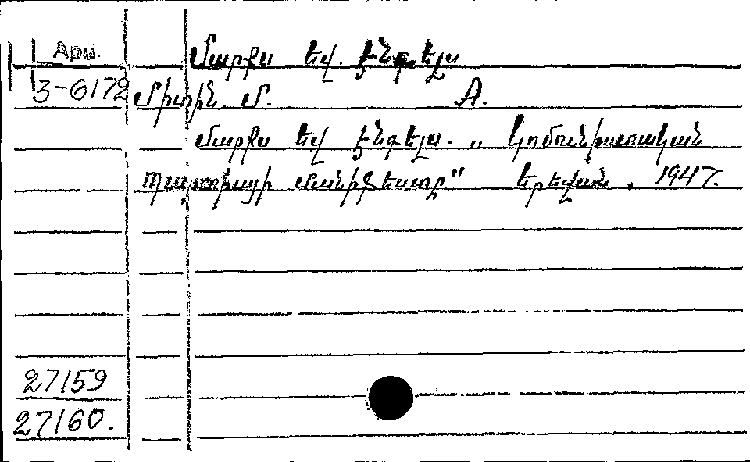 Арм. Մարքս եվ Էնգելս
3-6172 Միտին Մ. А.
Մարքս եվ Էնգելս. „ Կոմունիստական
Պարտիայի մանիֆեստը" Երեվան. 1947.
27159
27160.